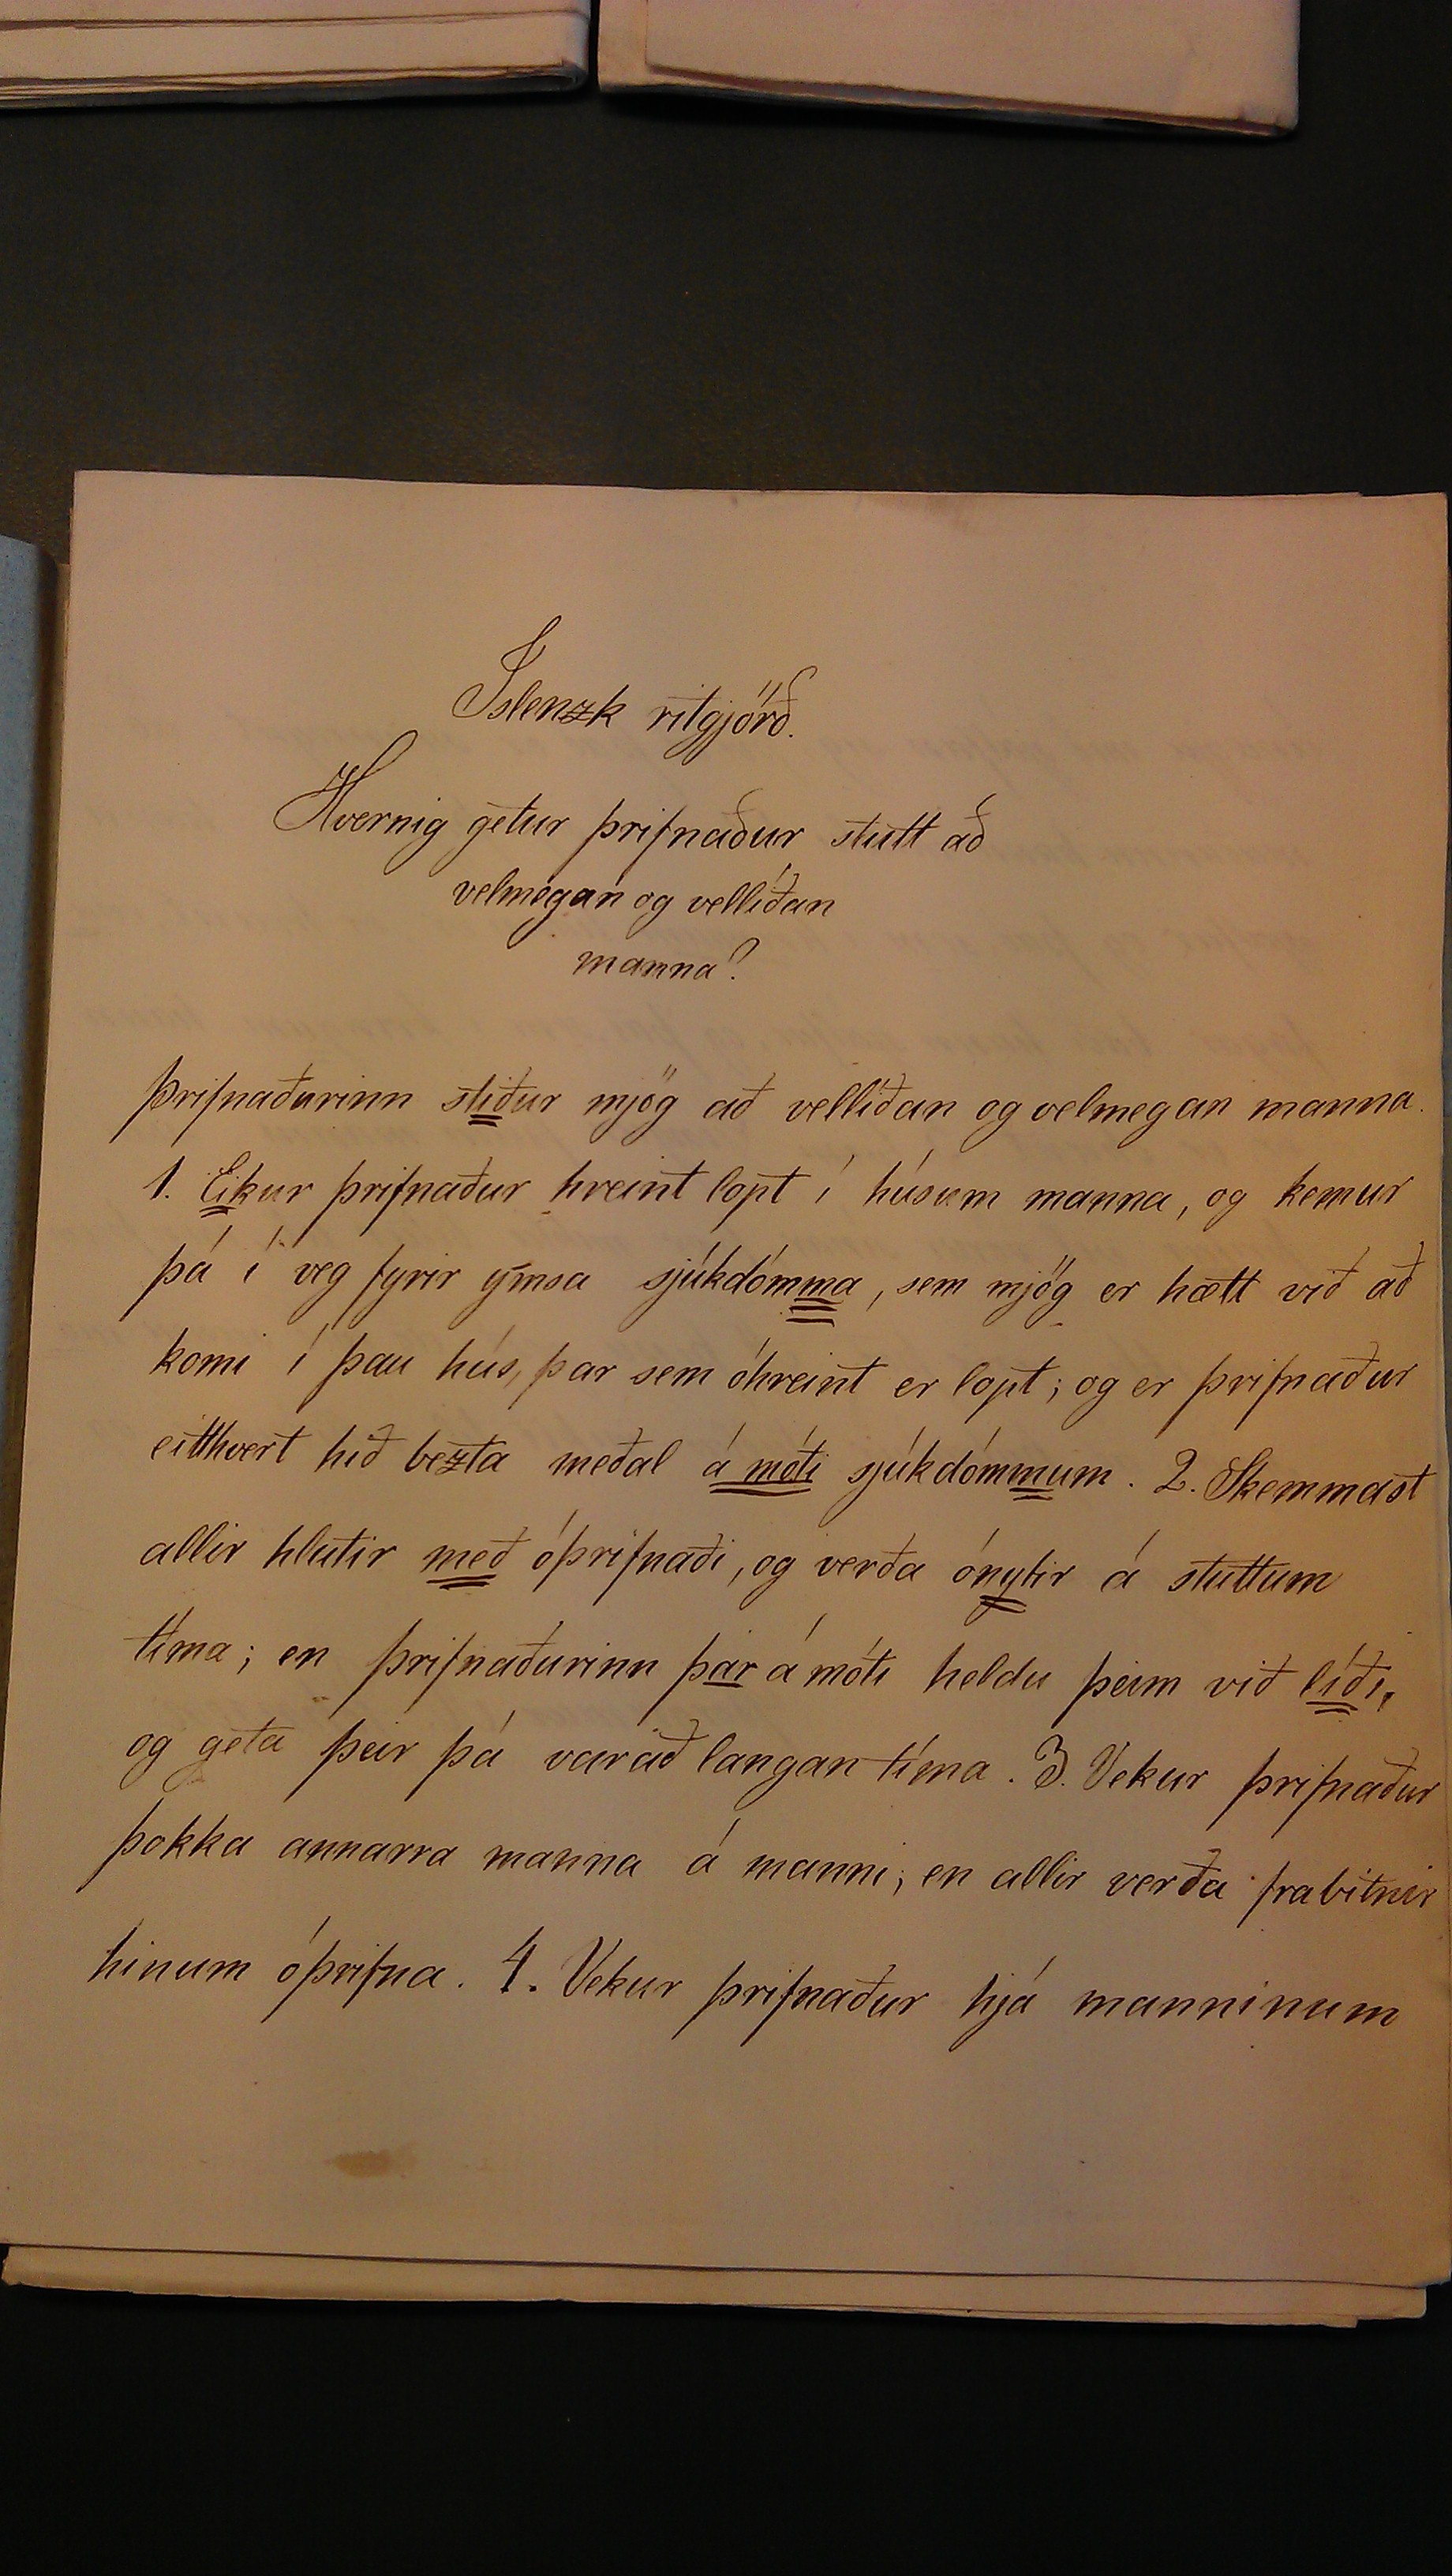 Íslenzk ritgjörð.
Hvernig getur þrifnaður stutt að
velmegan og vellíðan
manna?
Þrifnaðurinn stiður mjög að vellíðan og velmegan manna.
1. Eikur þrifnaður hreint lopt í húsum manna, og kemur
þá í veg fyrir ýmsa sjúkdómma, sem mjög er hætt við að
komi í þau hús, þar sem óhreint er lopt; og er þrifnaður
eitthvert hið bezta meðal á móti sjúkdómmum. 2. Skemmast
allir hlutir með óþrifnaði, og verða ónytir á stuttum
tíma; en þrifnaðurinn þar á móti heldu þeim við líði,
og geta þeir þá varað langan tíma. 3. Vekur þrifnaður
þokka annarra manna á manni; en allir verða frabitnir
hinum óþrifna. 4. Vekur þrifnaður hjá manninum